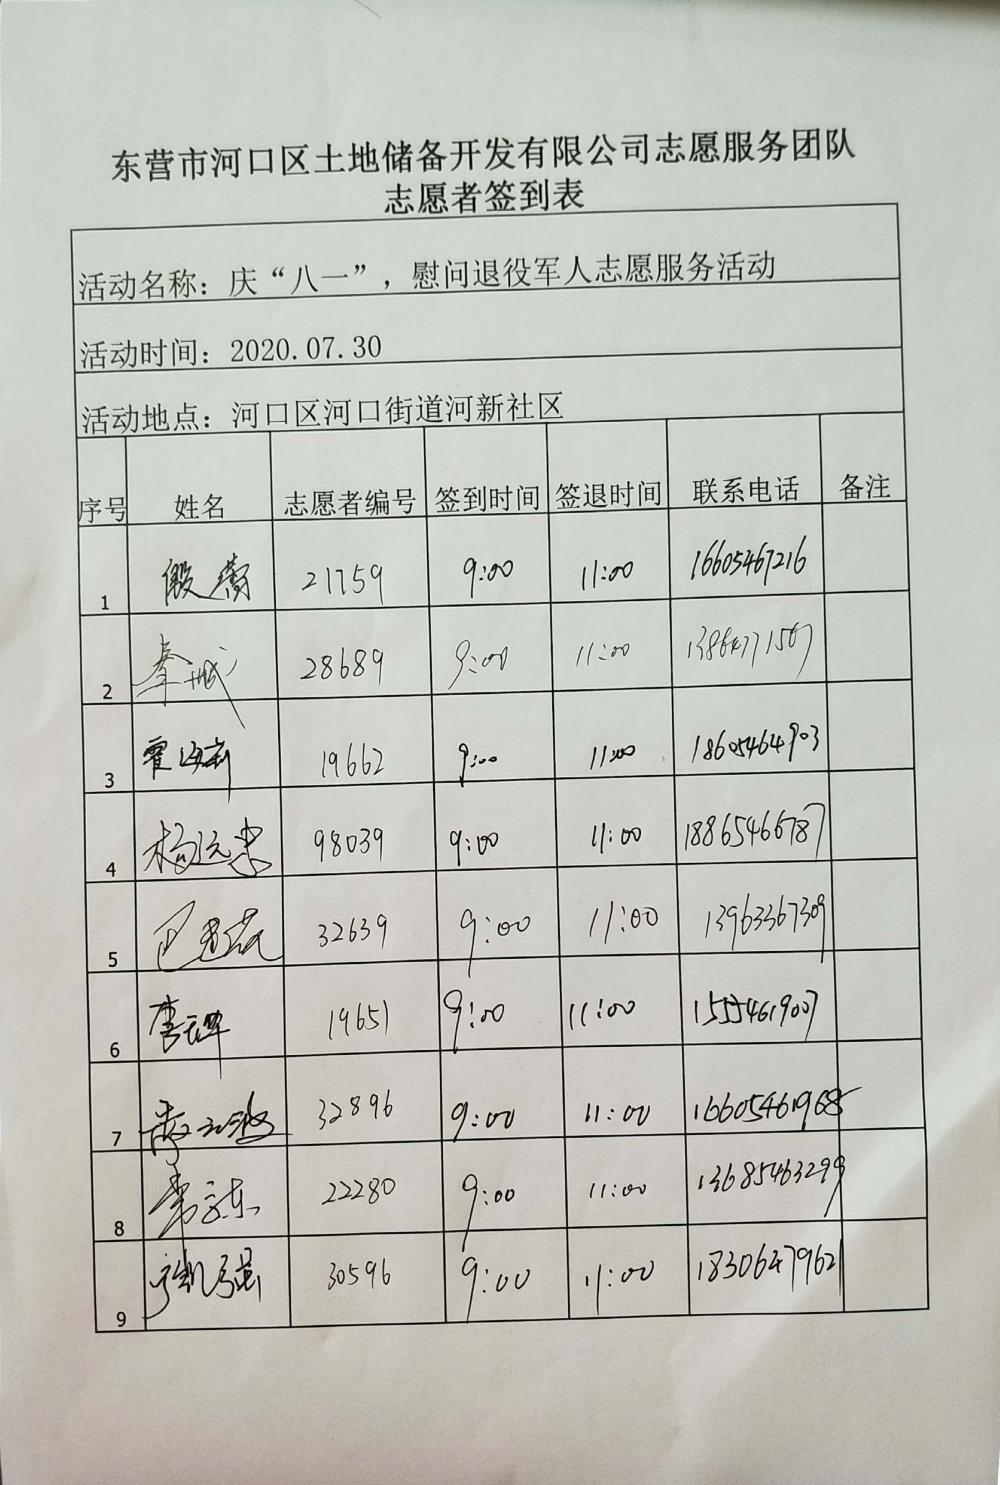 东营市河口区土地储备开发有限公司志愿服务团队
志愿者签到表
活动名称：庆“八一”，慰问退役军人志愿服务活动
活动时间：2020.07.30
活动地点：河口区河口街道河新社区
序号 姓名 志愿者编号 签到时间 签退时间 联系电话 备注
1 殷蕾 21759 9:00 11:00 16605467216
2 28689 9:00 11:00
3 霍海新 19662 9:00 11:00 18605464903
4 杨远忠 98039 9:00 11:00 18865466787
5 32639 9:00 11:00 13963367309
6 19651 9:00 11:00 15554619007
7 32896 9:00 11:00 16605461968
8 22280 9:00 11:00 13685463299
9 30596 9:00 11:00 18306479621